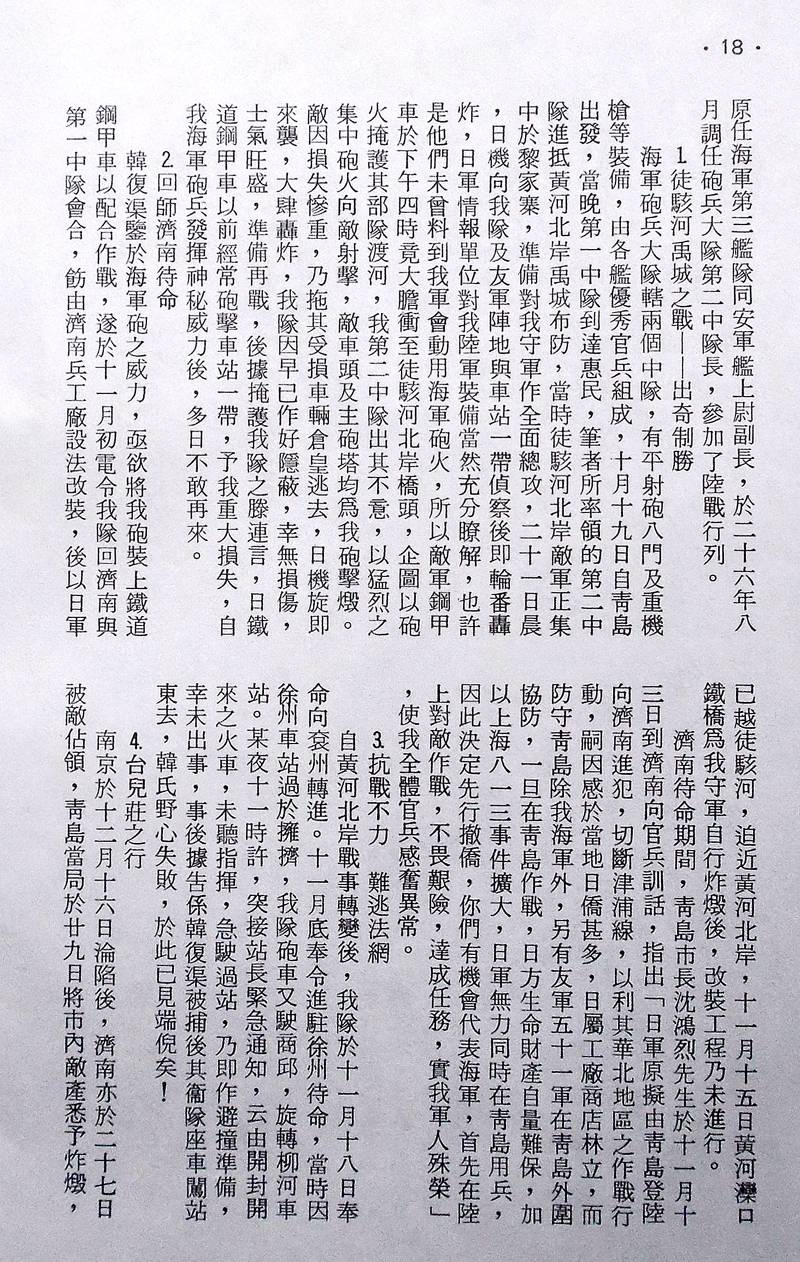 ·18·
原任海軍第三艦隊同安軍艦上尉副長，於二十六年八
月調任砲兵大隊第二中隊長，參加了陸戰行列。
1.徒駭河禹城之戰——出奇制勝
海軍砲兵大隊轄兩個中隊，有平射砲八門及重機
槍等裝備，由各艦優秀官兵組成，十月十九日自靑島
出發，當晚第一中隊到達惠民，筆者所率領的第二中
隊進抵黃河北岸禹城布防，當時徒駭河北岸敵軍正集
中於黎家寨，準備對我守軍作全面總攻，二十一日晨
，日機向我隊及友軍陣地與車站一帶偵察後即輪番轟
炸，日軍情報單位對我陸軍裝備當然充分瞭解，也許
是他們未曾料到我軍會動用海軍砲火，所以敵軍鋼甲
車於下午四時竟大膽衝至徒駭河北岸橋頭，企圖以砲
火掩護其部隊渡河，我第二中隊出其不意，以猛烈之
集中砲火向敵射擊，敵車頭及主砲塔均爲我砲擊燬。
敵因損失慘重，乃拖其受損車輛倉皇逃去，日機旋即
來襲，大肆轟炸，我隊因早已作好隱蔽，幸無損傷，
士氣旺盛，準備再戰，後據掩護我隊之滕連言，日鐵
道鋼甲車以前經常砲擊車站一帶，予我重大損失，自
我海軍砲兵發揮神秘威力後，多日不敢再來。
2.回師濟南待命
韓復渠鑒於海軍砲之威力，亟欲將我砲裝上鐵道
鋼甲車以配合作戰，遂於十一月初電令我隊回濟南與
第一中隊會合，飭由濟南兵工廠設法改裝，後以日軍
已越徒駭河，迫近黃河北岸，十一月十五日黃河灤口
鐵橋爲我守軍自行炸燬後，改裝工程乃未進行。
濟南待命期間，靑島市長沈鴻烈先生於十一月十
三日到濟南向官兵訓話，指出「日軍原擬由靑島登陸
向濟南進犯，切斷津浦線，以利其華北地區之作戰行
動，嗣因感於當地日僑甚多，日屬工廠商店林立，而
防守靑島除我海軍外，另有友軍五十一軍在靑島外圍
協防，一旦在靑島作戰，日方生命財產自量難保，加
以上海八一三事件擴大，日軍無力同時在靑島用兵，
因此決定先行撤僑，你們有機會代表海軍，首先在陸
上對敵作戰，不畏艱險，達成任務，實我軍人殊榮」
，使我全體官兵感奮異常。
3.抗戰不力　難逃法網
自黃河北岸戰事轉變後，我隊於十一月十八日奉
命向兗州轉進。十一月底奉令進駐徐州待命，當時因
徐州車站過於擁擠，我隊砲車又駛商邱，旋轉柳河車
站。某夜十一時許，突接站長緊急通知，云由開封開
來之火車，未聽指揮，急駛過站，乃即作避撞準備，
幸未出事，事後據吿係韓復渠被捕後其衞隊座車闖站
東去，韓氏野心失敗，於此已見端倪矣！
4.台兒莊之行
南京於十二月十六日淪陷後，濟南亦於二十七日
被敵佔領，靑島當局於廿九日將市內敵產悉予炸燬，